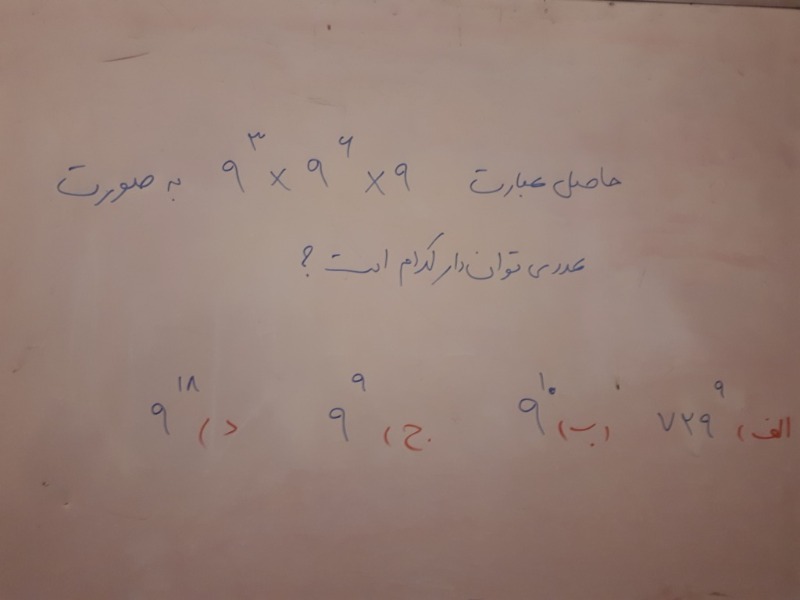 حاصل عبارت ۹^۳ × ۹^۶ × ۹ به صورت
عددی توان‌دار کدام است ؟
الف) ۷۲۹^۹ ب) ۹^۱۰ ج) ۹^۹ د) ۹^۱۸